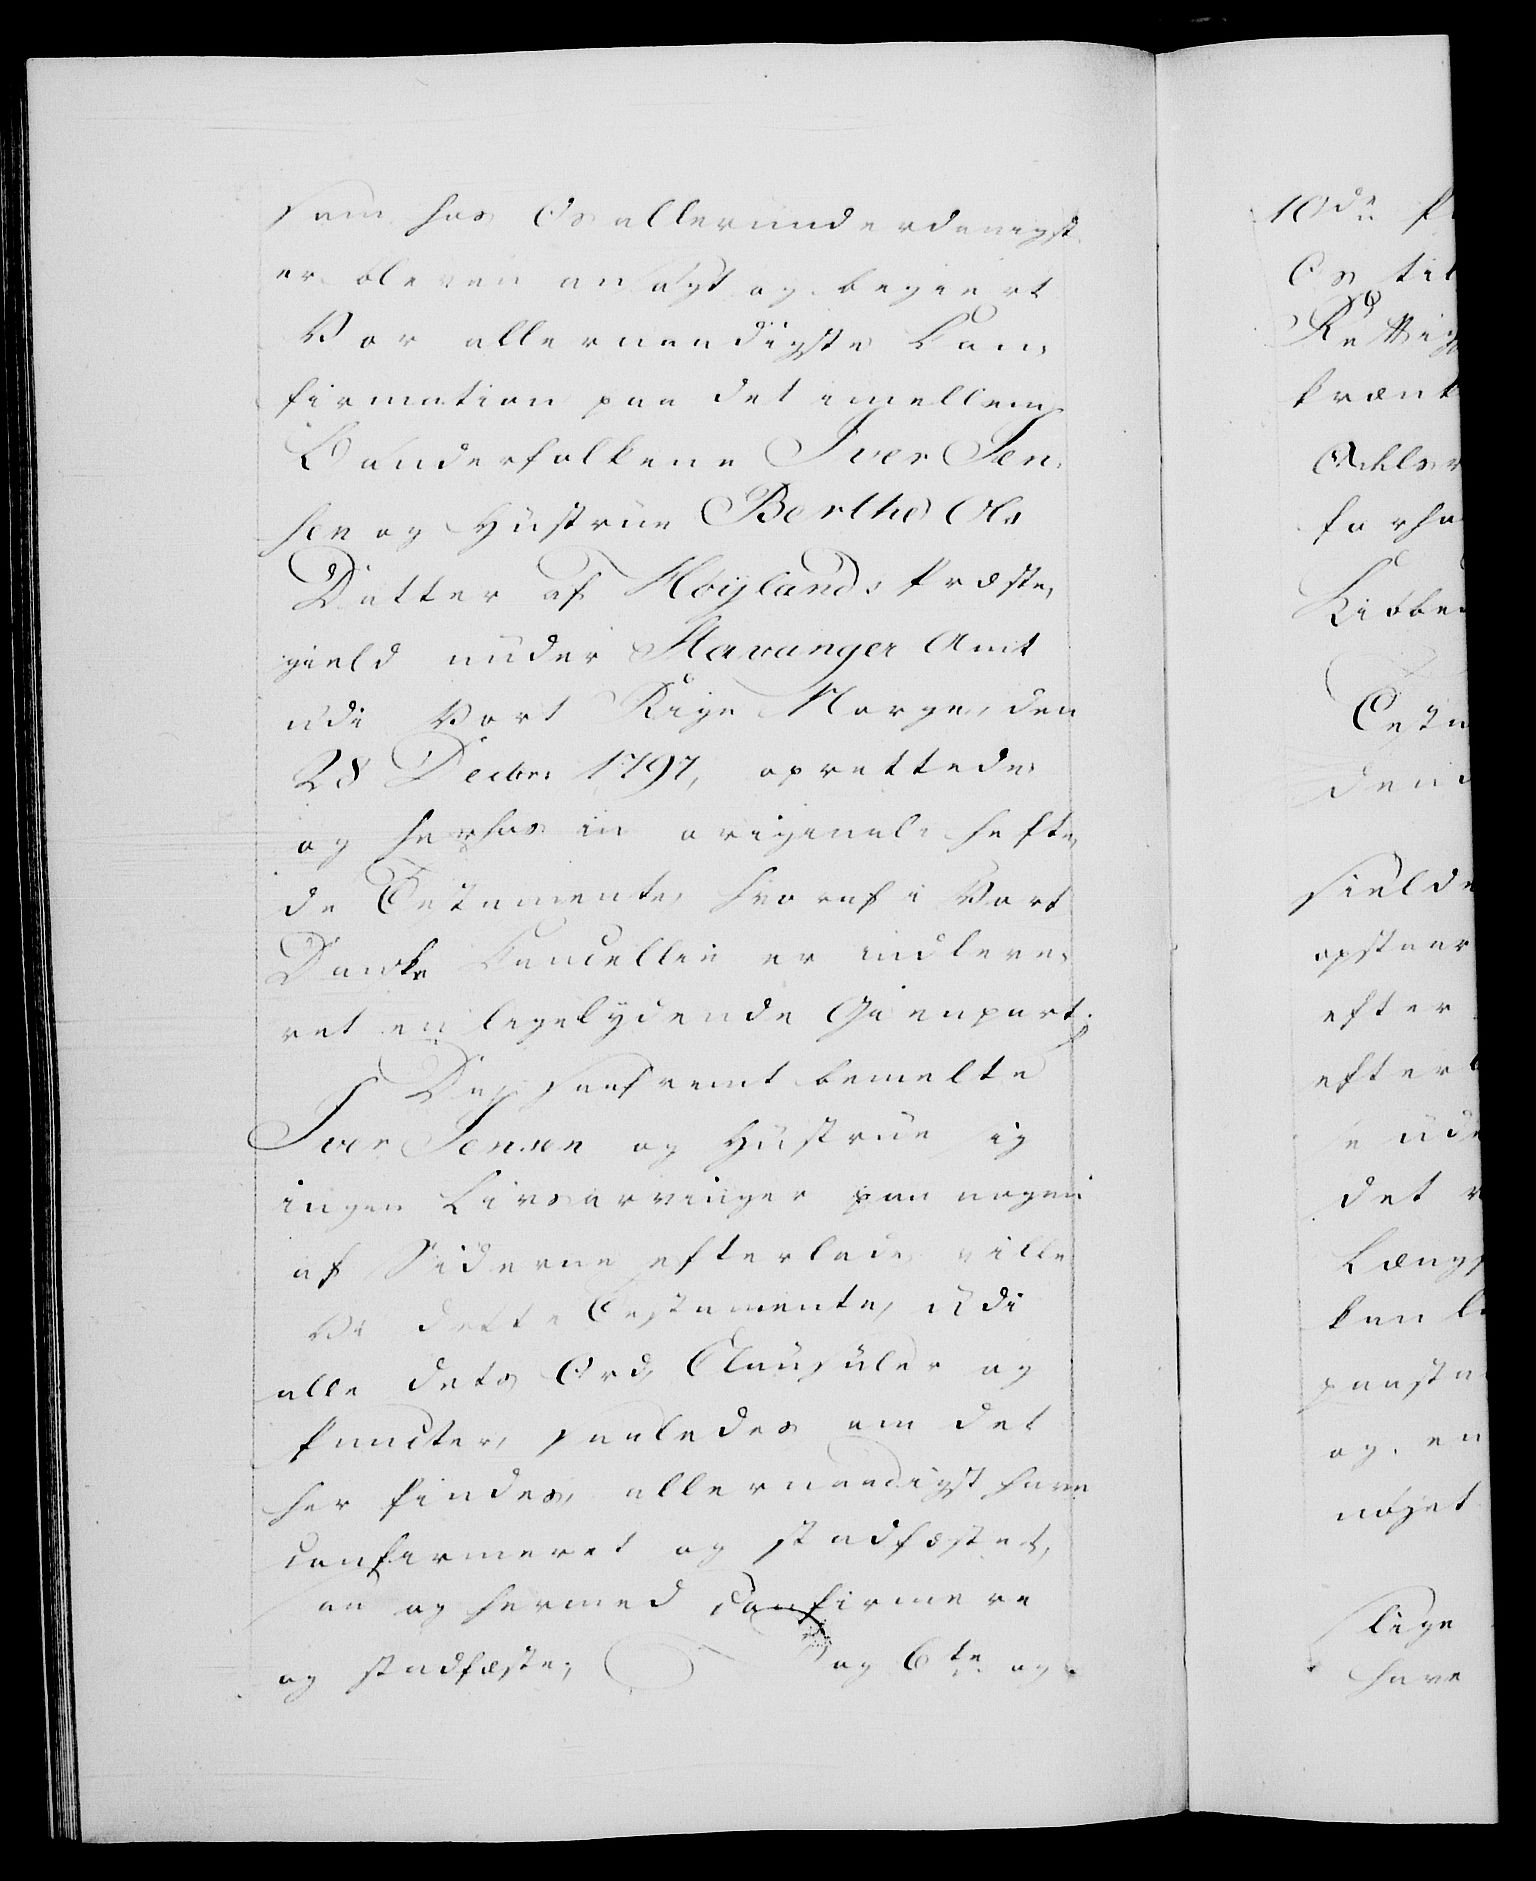 som hos Os allerunderdanigst
er bleven ansøgt og begiert
Vor allernaadigste Con-
firmation paa det imellem
Bønderfolkene Iver Jen-
sen og Hustrue Berthe Ols
Datter af Høylands Præste-
gield under Stavanger Amt
udi Vort Rige Norge, den
28 Decbr 1797, oprettede
og herhos in originali hefte-
de Testamente, hvoraf i Vort
Danske Cancellie er indleve-
ret en ligelydende Gienpart.
Da, saafremt bemelte
Iver Jensen og Hustrue ey
ingen Livsarvinger paa nogen
af Siderne efterlade, ville
Vi dette Testamente, udi
alle dets Ord, Clausuler og
Puncter, saaledes som det
her findes, allernaadigst have
confirmeret og stadfæstet,
saa og hermed confirmere
og stadfæste; og 6te og
10de
Os til
krænk
Kiøbe
den
opstaar
efter
efter
ude
det
Længs
kan
paasta
og en
nøjet
slige
have